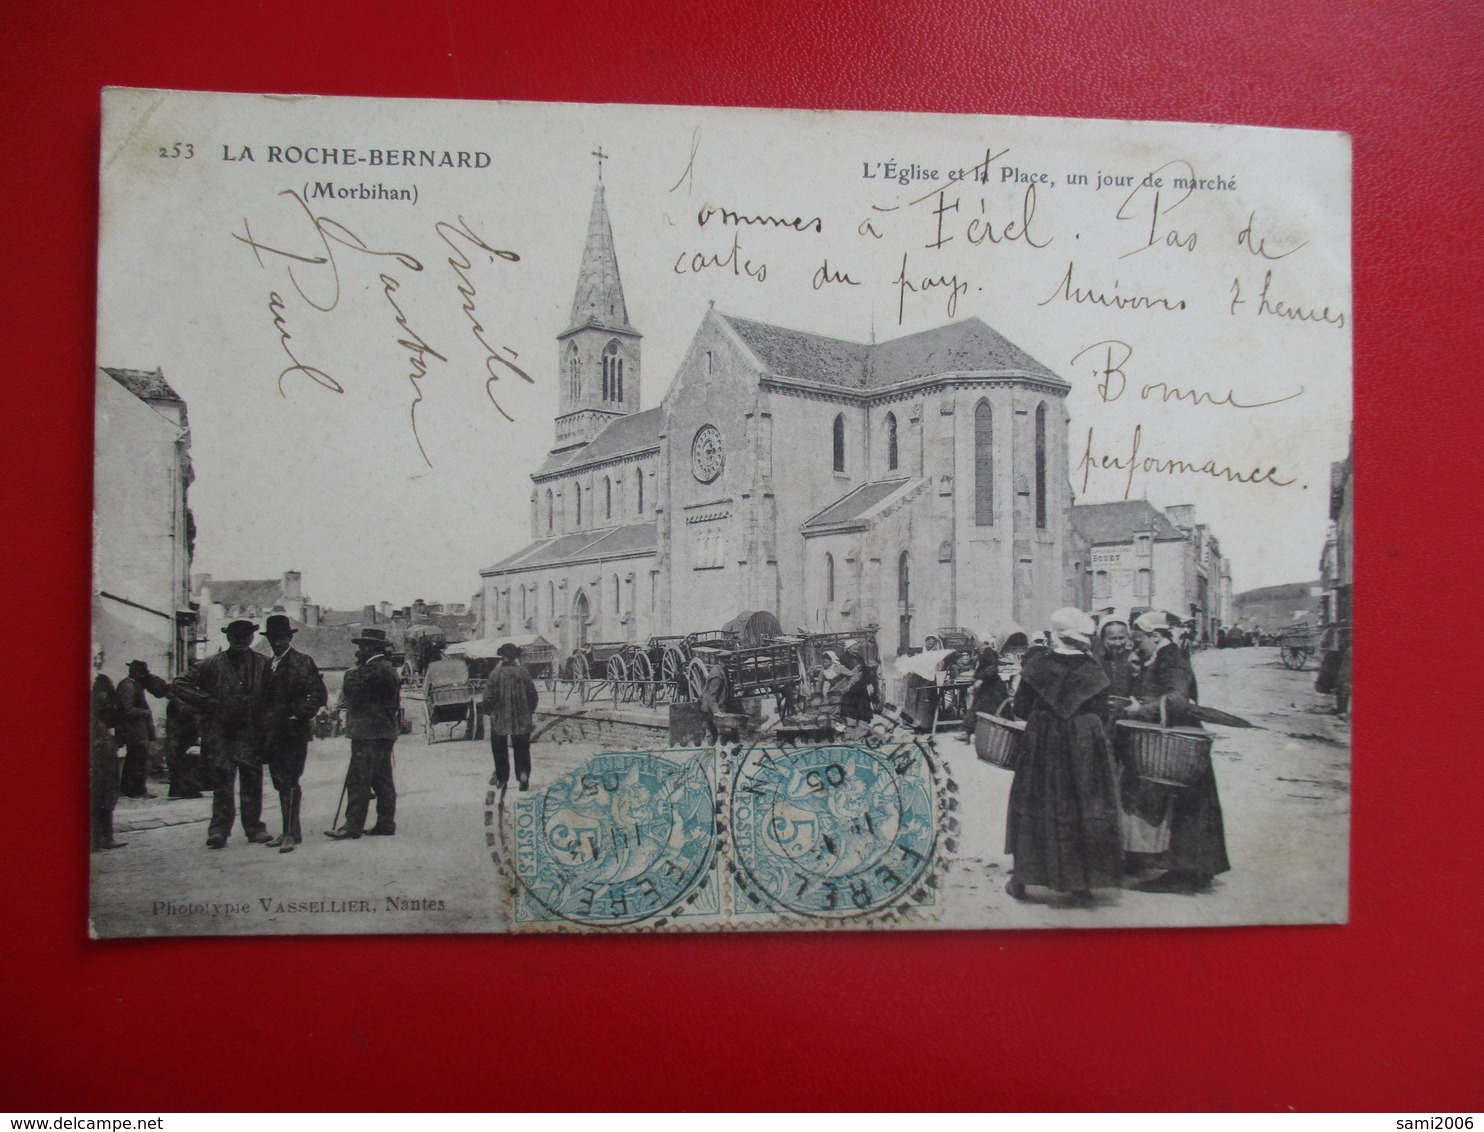 253 LA ROCHE-BERNARD
(Morbihan)
L'Église et la Place, un jour de marché
Sommes à Férel. Pas de
cartes du pays. Suivons 7 heures
Bonne
performance.
Paul
Gaston
Emile
BOUET
POSTES 5
POSTES 5
FEREL
14
05
FEREL
MORBIHAN
14
05
Phototypie VASSELLIER, Nantes
sami2006